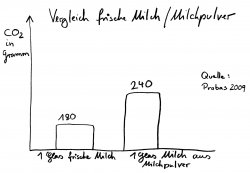 Vergleich frische Milch/Milchpulver
CO2
in
Gramm
240
180
Quelle:
Probas 2009
1 Glas frische Milch
1 Glas Milch aus
Milchpulver